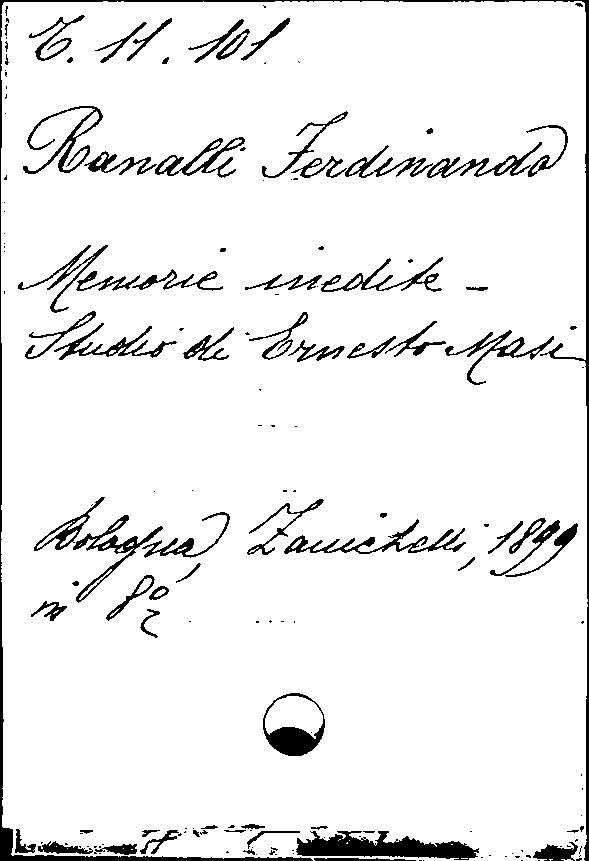 T. 11. 101
Ranalli Ferdinando
Memorie inedite -
Studio di Ernesto Masi
Bologna, Zanichelli, 1899
in 8º